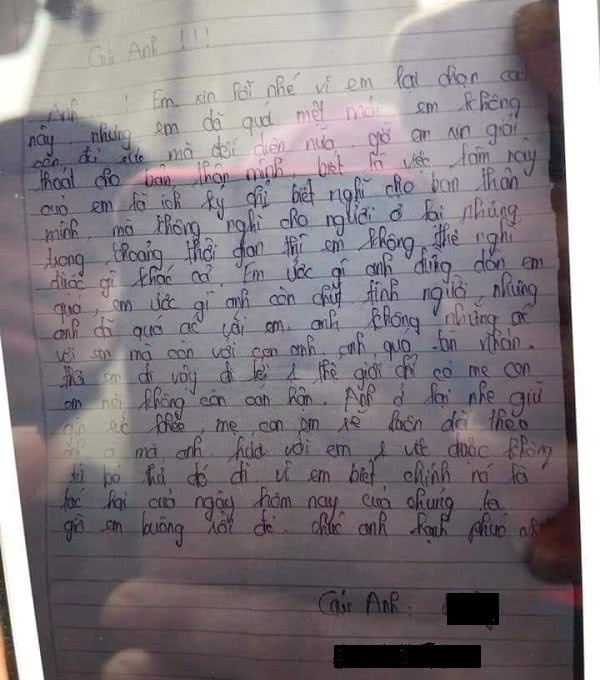 Gửi Anh !!!
Anh ! Em xin lỗi nhé vì em lại chọn cách
này, nhưng em đã quá mệt mỏi em không
còn đủ sức mà đối diện nữa, giờ em xin giải
thoát cho bản thân mình, biết là việc làm này
của em là ích kỷ chỉ biết nghĩ cho bản thân
mình, mà không nghĩ cho người ở lại nhưng
trong khoảng thời gian thì em không thể nghĩ
được gì khác cả. Em ước gì anh đừng dồn em
quá, em ước gì anh còn chút tình người nhưng
anh đã quá ác với em anh không những ác
với em mà còn với con anh, anh quá tàn nhẫn.
em đi vậy đi tới 1 thế giới chỉ có mẹ con
em nơi không còn oan hận. Anh ở lại nhé giữ
sức khỏe, mẹ con em sẽ luôn dõi theo
mà anh hứa với em 1 việc được không
từ bỏ thứ đó đi vì em biết chính nó là
tác hại của ngày hôm nay của chúng ta
giờ em buông rồi đó. chúc anh hạnh phúc
Gửi Anh :